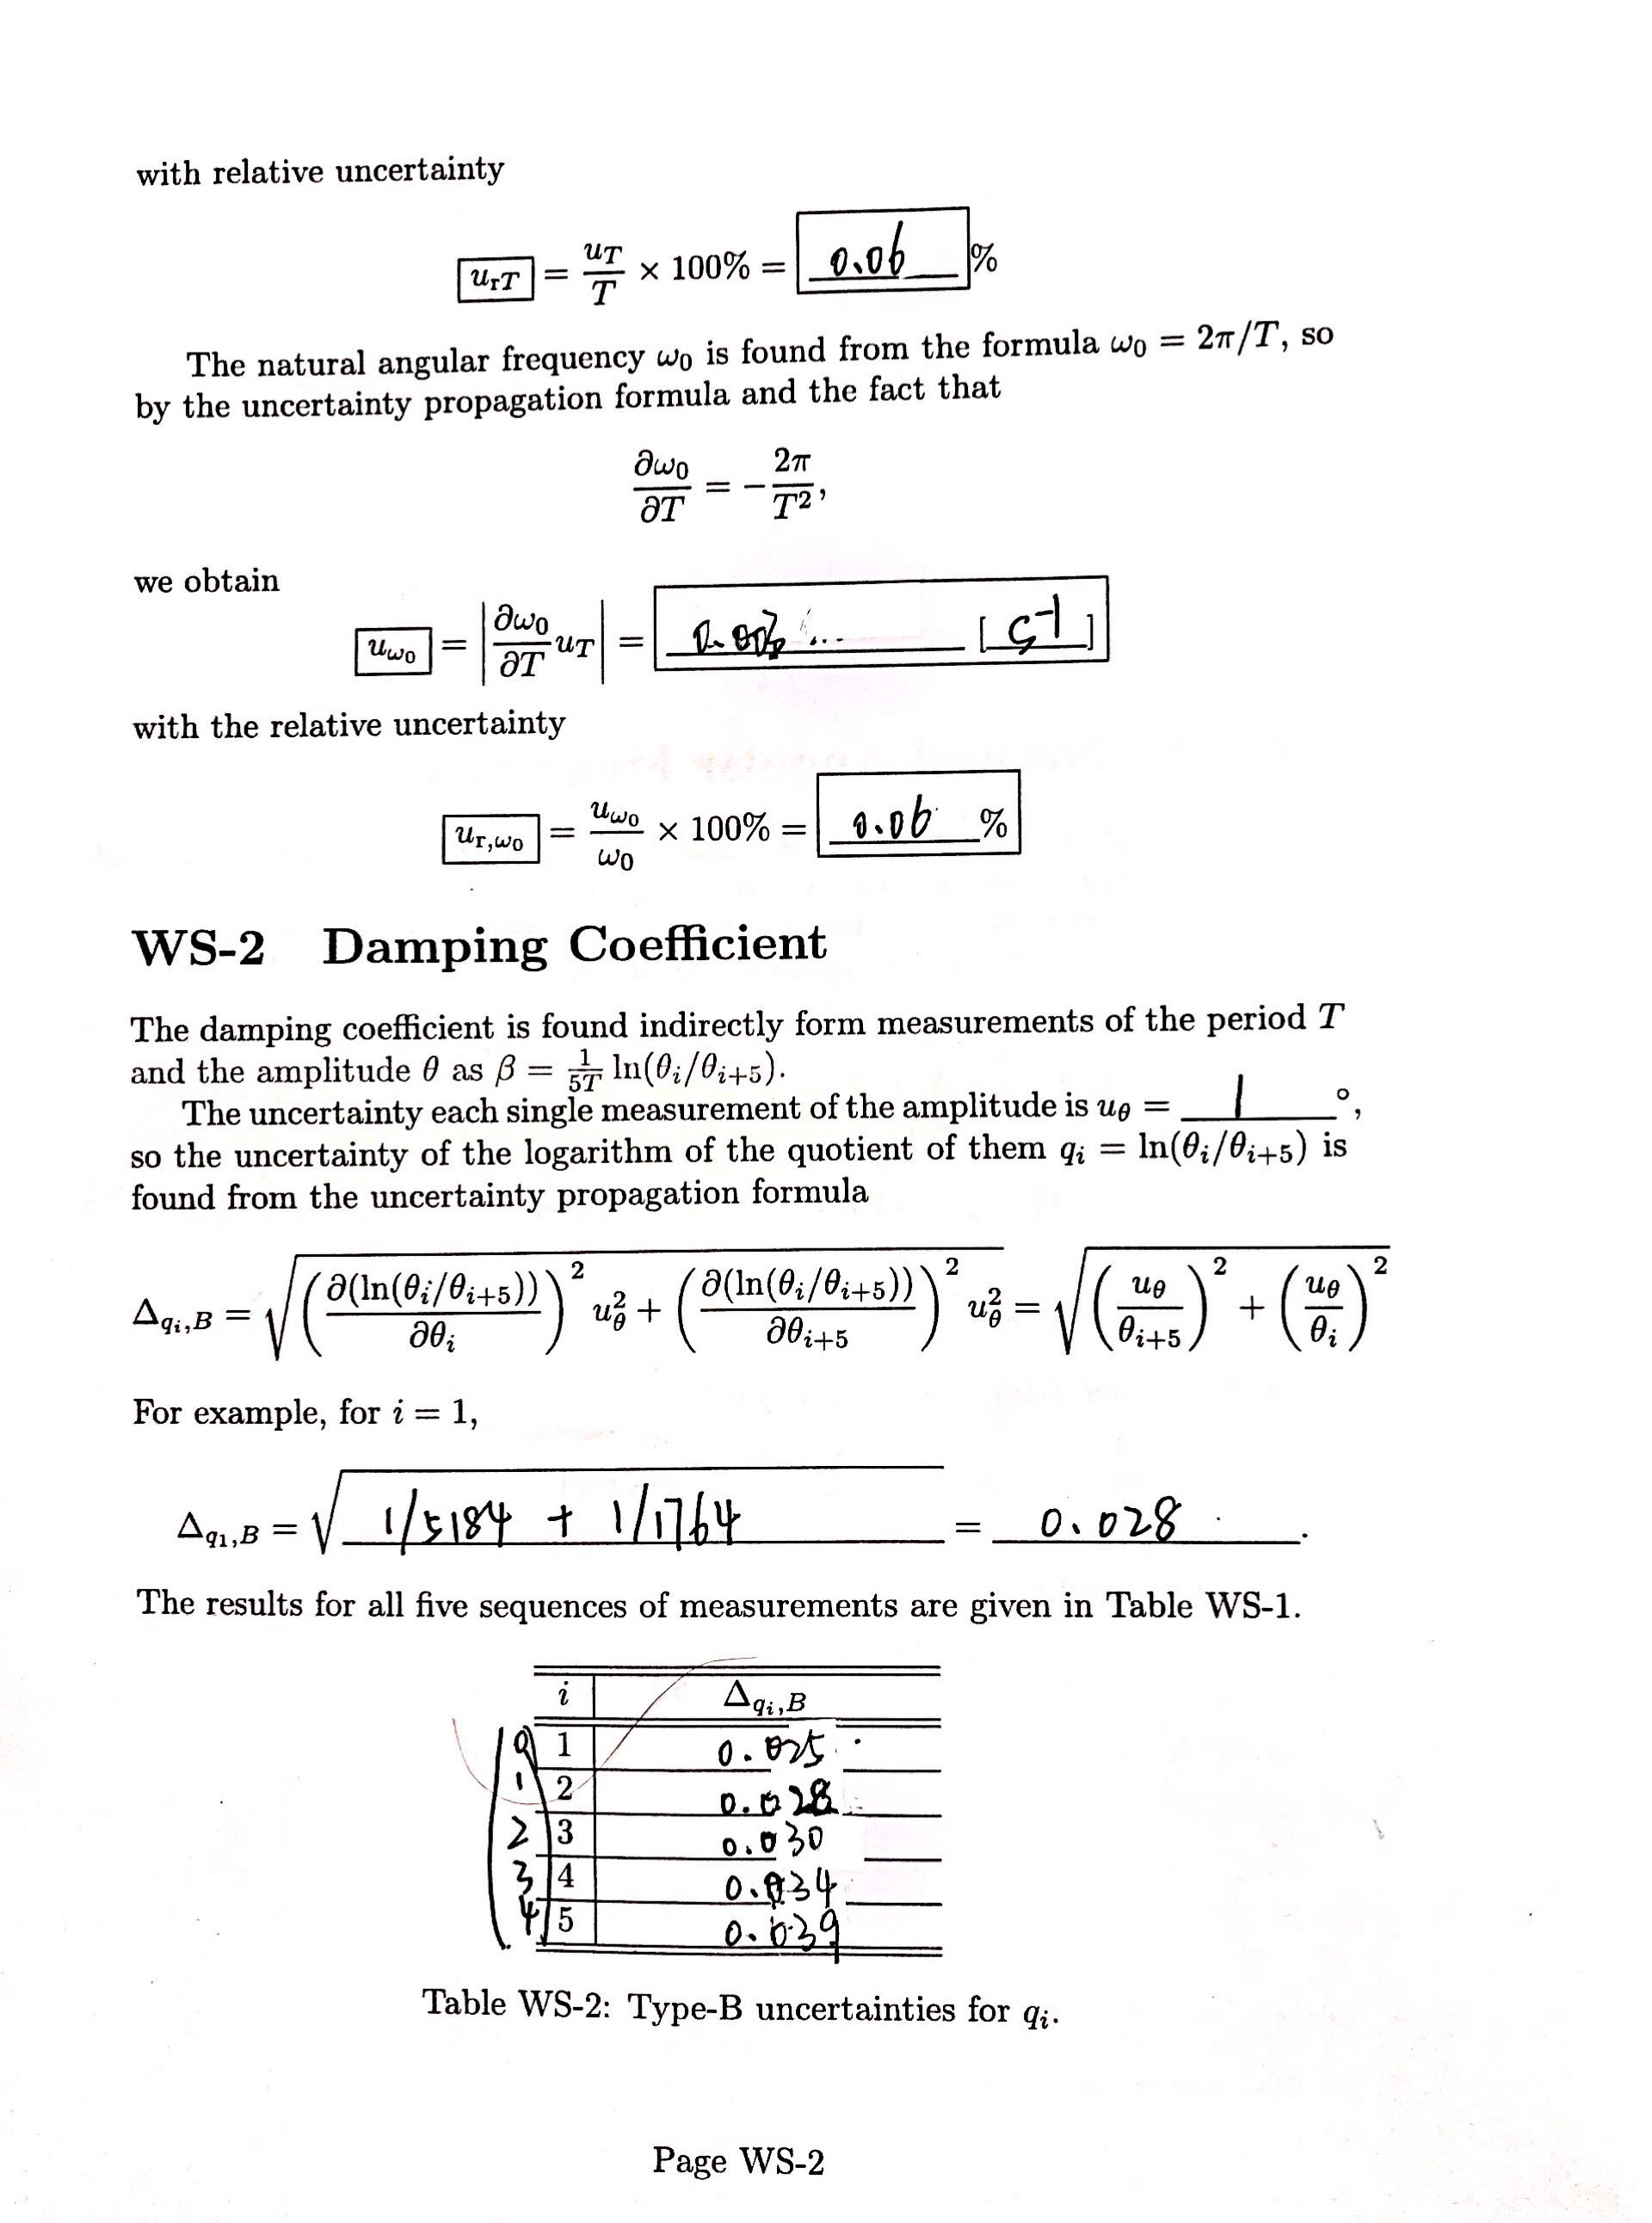 with relative uncertainty
u_rT = u_T / T × 100% = 0.06 %
The natural angular frequency ω₀ is found from the formula ω₀ = 2π/T, so
by the uncertainty propagation formula and the fact that
∂ω₀/∂T = −2π/T²,
we obtain
u_ω₀ = |∂ω₀/∂T u_T| = [s⁻¹]
with the relative uncertainty
u_r,ω₀ = u_ω₀ / ω₀ × 100% = 0.06 %
WS-2 Damping Coefficient
The damping coefficient is found indirectly form measurements of the period T
and the amplitude θ as β = 1/5T ln(θᵢ/θᵢ₊₅).
The uncertainty each single measurement of the amplitude is u_θ = 1 °,
so the uncertainty of the logarithm of the quotient of them qᵢ = ln(θᵢ/θᵢ₊₅) is
found from the uncertainty propagation formula
Δ_qᵢ,B = √((∂(ln(θᵢ/θᵢ₊₅))/∂θᵢ)² u_θ² + (∂(ln(θᵢ/θᵢ₊₅))/∂θᵢ₊₅)² u_θ²) = √((u_θ/θᵢ₊₅)² + (u_θ/θᵢ)²)
For example, for i = 1,
Δ_q₁,B = √(1/5184 + 1/1764) = 0.028 .
The results for all five sequences of measurements are given in Table WS-1.
i Δ_qᵢ,B
0 1 0.025
1 2 0.028
2 3 0.030
3 4 0.034
4 5 0.039
Table WS-2: Type-B uncertainties for qᵢ.
Page WS-2